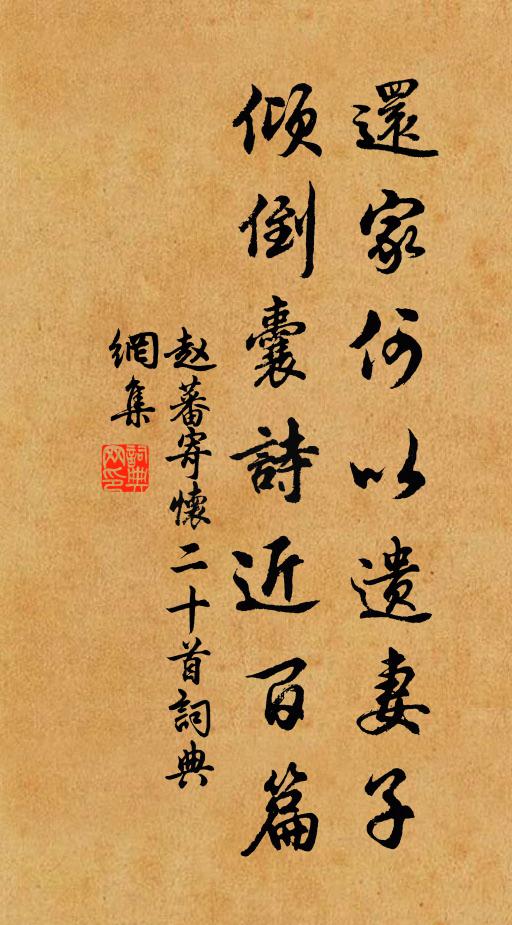 還家何以遺妻子
傾倒囊詩近百篇
赵蕃寄懷二十首詞典
網集
詞典網印